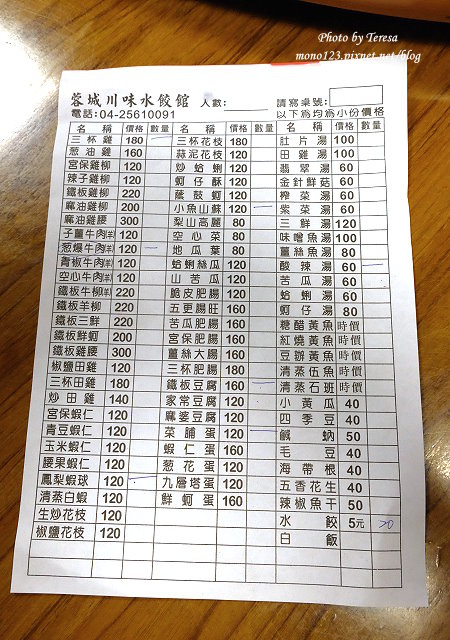 Photo by Teresa
mono123.pixnet.net/blog
蓉城川味水餃館 人數: 請寫桌號:
電話:04-25610091 以下為均為小份價格
名稱 價格 數量 名稱 價格 數量 名稱 價格 數量
三杯雞 180 三杯花枝 180 肚片湯 100
葱油雞 160 蒜泥花枝 120 田雞湯 100
宮保雞柳 120 炒蛤蜊 120 翡翠湯 60
辣子雞柳 120 蚵仔酥 120 金針鮮菇 60
鐵板雞柳 220 蔭豉蚵 120 榨菜湯 60
麻油雞柳 200 小魚山蘇 120 紫菜湯 60
麻油雞腰 300 梨山高麗 80 三鮮湯 120
子薑牛肉 120 空心菜 80 味噌魚湯 100
葱爆牛肉 120 地瓜葉 80 薑絲魚湯 80
青椒牛肉 120 蛤蜊絲瓜 120 酸辣湯 60
空心牛肉 120 山苦瓜 120 苦瓜湯 60
鐵板牛柳 220 脆皮肥腸 120 蛤蜊湯 60
鐵板羊柳 220 五更腸旺 160 蚵仔湯 80
鐵板三鮮 220 苦瓜肥腸 160 糖醋黃魚 時價
鐵板鮮蚵 200 宮保肥腸 160 紅燒黃魚 時價
鐵板雞腰 300 薑絲大腸 160 豆瓣黃魚 時價
椒鹽田雞 120 三杯肥腸 180 清蒸伍魚 時價
三杯田雞 180 鐵板豆腐 160 清蒸石班 時價
炒田雞 140 家常豆腐 120 小黃瓜 40
宮保蝦仁 120 麻婆豆腐 120 四季豆 40
青豆蝦仁 120 菜脯蛋 120 鹹蚋 50
玉米蝦仁 120 蝦仁蛋 160 毛豆 40
腰果蝦仁 120 葱花蛋 120 海帶根 40
鳳梨蝦球 120 九層塔蛋 120 五香花生 40
清蒸白蝦 120 鮮蚵蛋 160 辣椒魚干 50
生炒花枝 120 水餃 5元 20
椒鹽花枝 120 白飯